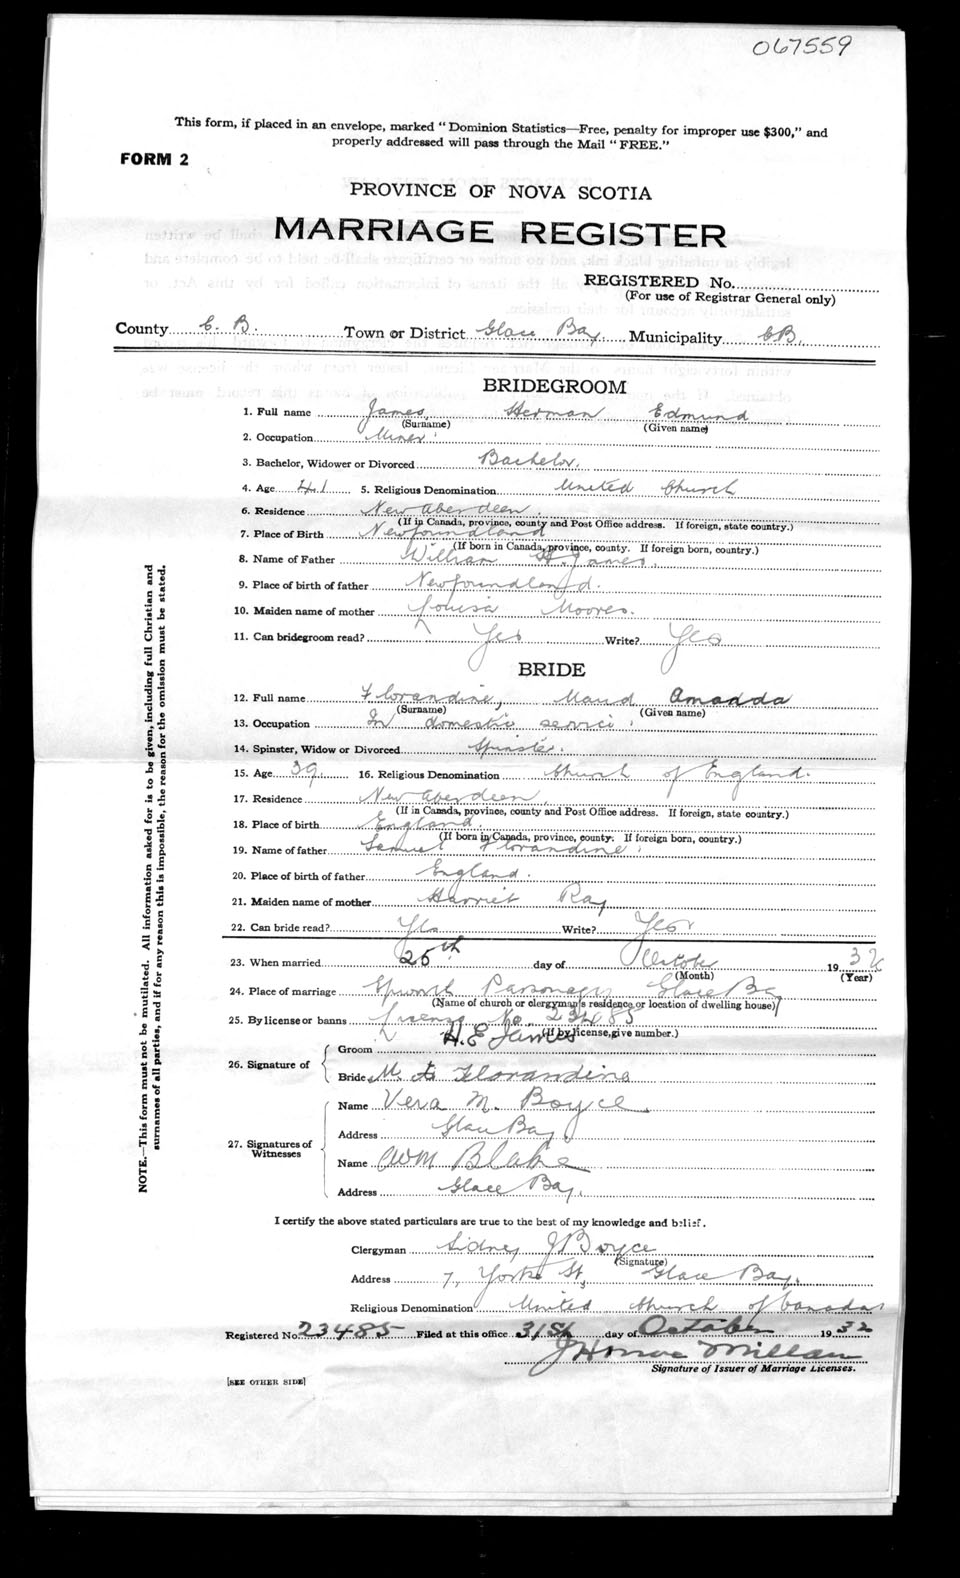 067559
This form, if placed in an envelope, marked "Dominion Statistics—Free, penalty for improper use $300," and
properly addressed will pass through the Mail "FREE."
FORM 2
PROVINCE OF NOVA SCOTIA
MARRIAGE REGISTER
REGISTERED No.
(For use of Registrar General only)
County C. B. Town or District Glace Bay. Municipality C.B.
BRIDEGROOM
1. Full name James, Herman Edmund
(Surname) (Given name)
2. Occupation Miner
3. Bachelor, Widower or Divorced Bachelor.
4. Age 41 5. Religious Denomination United Church
6. Residence New Aberdeen.
(If in Canada, province, county and Post Office address. If foreign, state country.)
7. Place of Birth Newfoundland
(If born in Canada, province, county. If foreign born, country.)
8. Name of Father William H. James.
9. Place of birth of father Newfoundland.
10. Maiden name of mother Louisa Moores.
11. Can bridegroom read? Yes Write? Yes
BRIDE
12. Full name Florandine, Maud Amanda
(Surname) (Given name)
13. Occupation In domestic service
14. Spinster, Widow or Divorced Spinster.
15. Age 39. 16. Religious Denomination Church of England.
17. Residence New Aberdeen,
(If in Canada, province, county and Post Office address. If foreign, state country.)
18. Place of birth England.
(If born in Canada, province, county. If foreign born, country.)
19. Name of father Samuel Florandine
20. Place of birth of father England.
21. Maiden name of mother Harriet Ray
22. Can bride read? Yes Write? Yes
23. When married 25th day of October 1932
(Month) (Year)
24. Place of marriage Epworth Parsonage, Glace Bay
(Name of church or clergyman's residence or location of dwelling house)
25. By license or banns License No. 23485
(If by license, give number.)
26. Signature of
Groom H.E James
Bride M. A Florandine
27. Signatures of Witnesses
Name Vera M. Boyce
Address Glace Bay
Name Wm Blake
Address Glace Bay.
I certify the above stated particulars are true to the best of my knowledge and belief.
Clergyman Sidney J Boyce
(Signature)
Address 7, York St, Glace Bay.
Religious Denomination United Church of Canada
Registered No. 23485 Filed at this office 31st day of October 1932
Signature of Issuer of Marriage Licenses.
[SEE OTHER SIDE]
NOTE.—This form must not be mutilated. All information asked for is to be given, including full Christian and
surnames of all parties, and if for any reason this is impossible, the reason for the omission must be stated.